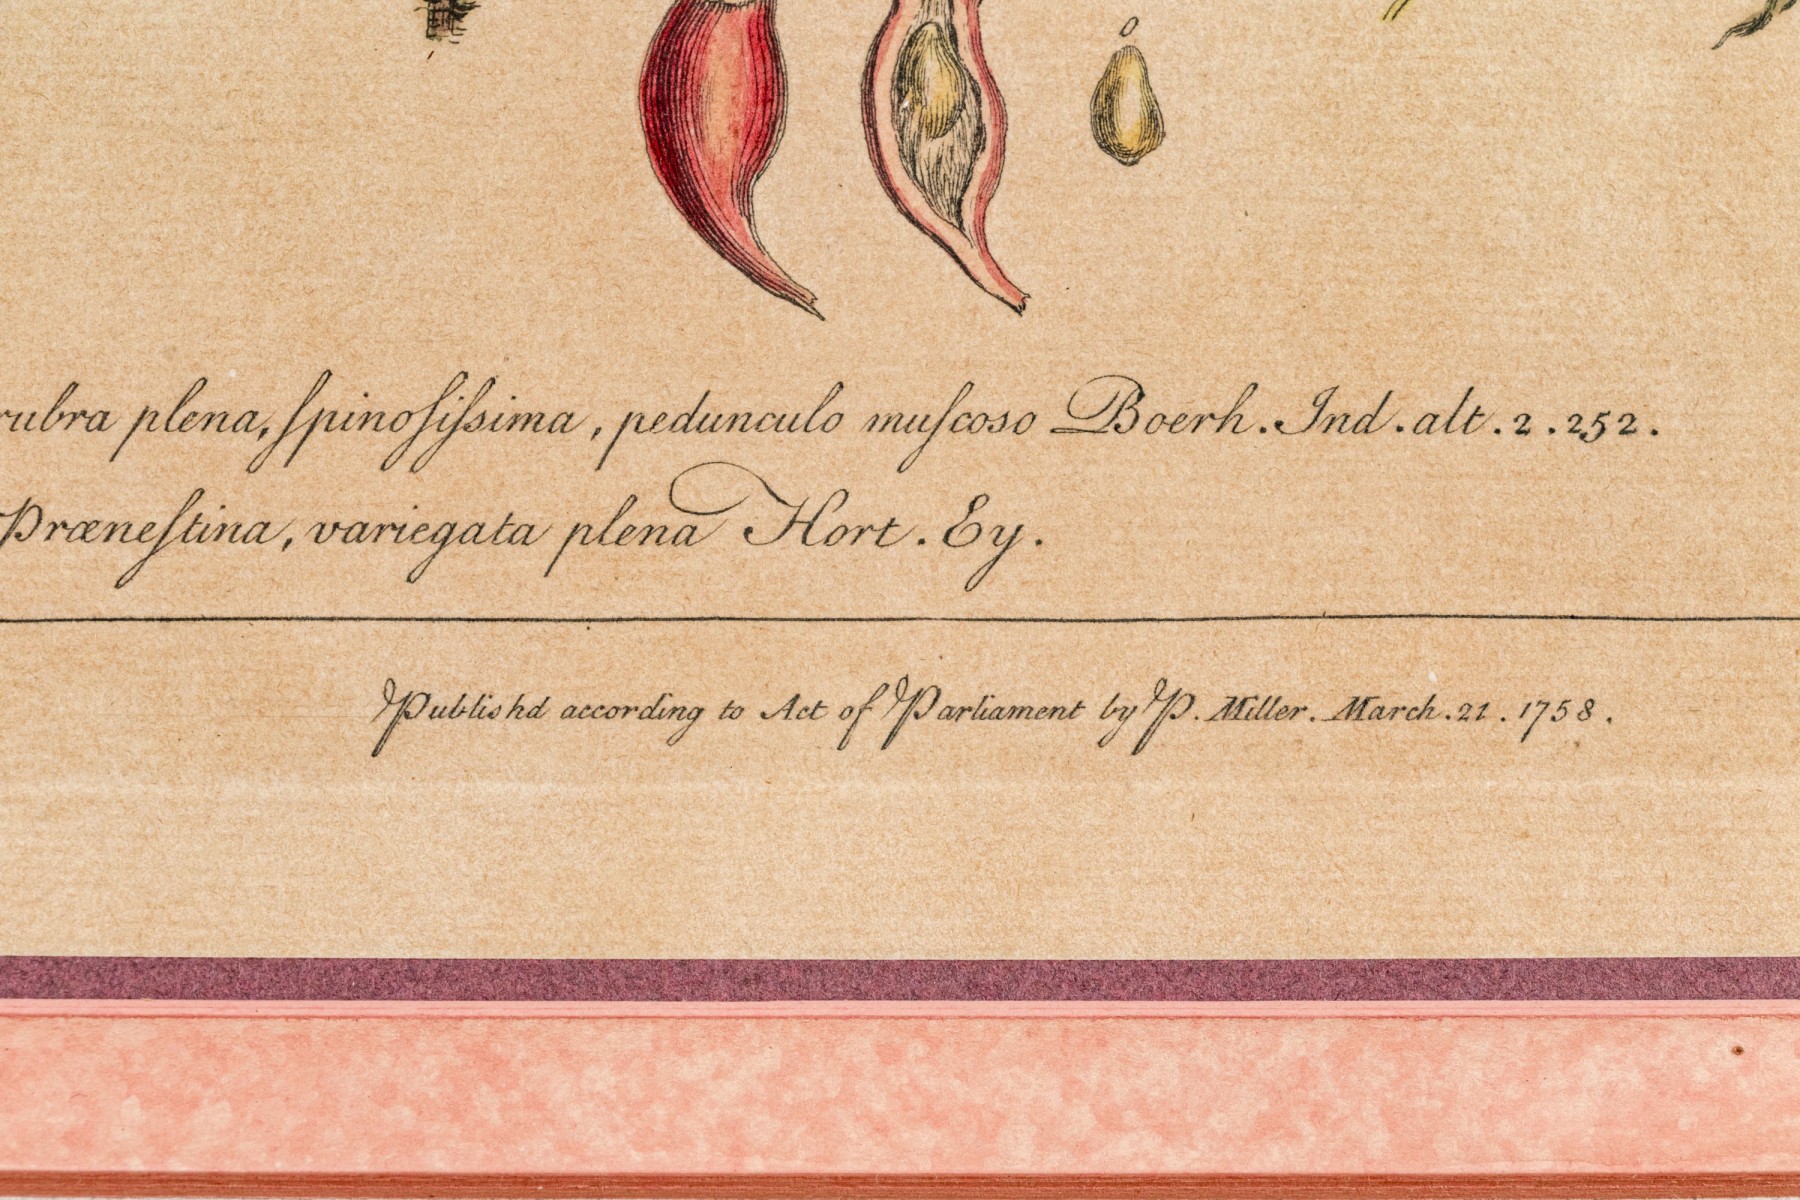 rubra plena, ſpinoſiſsima, pedunculo muſcoso Boerh. Ind. alt. 2. 252.
Præneſtina, variegata plena Hort. Ey.
Publishd according to Act of Parliament by P. Miller. March. 21. 1758.